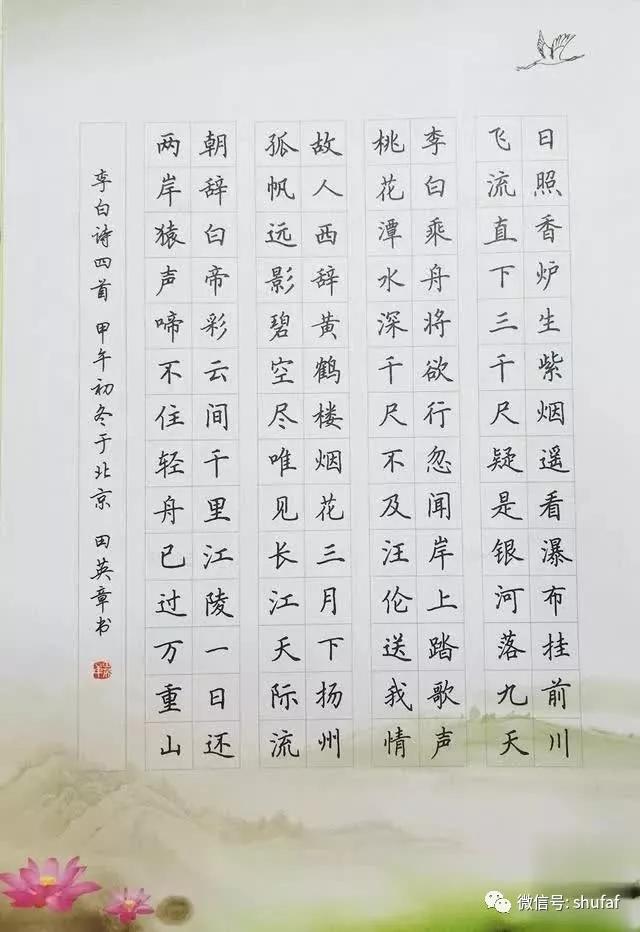 日照香炉生紫烟遥看瀑布挂前川
飞流直下三千尺疑是银河落九天
李白乘舟将欲行忽闻岸上踏歌声
桃花潭水深千尺不及汪伦送我情
故人西辞黄鹤楼烟花三月下扬州
孤帆远影碧空尽唯见长江天际流
朝辞白帝彩云间千里江陵一日还
两岸猿声啼不住轻舟已过万重山
李白诗四首 甲午初冬于北京 田英章书
微信号: shufaf